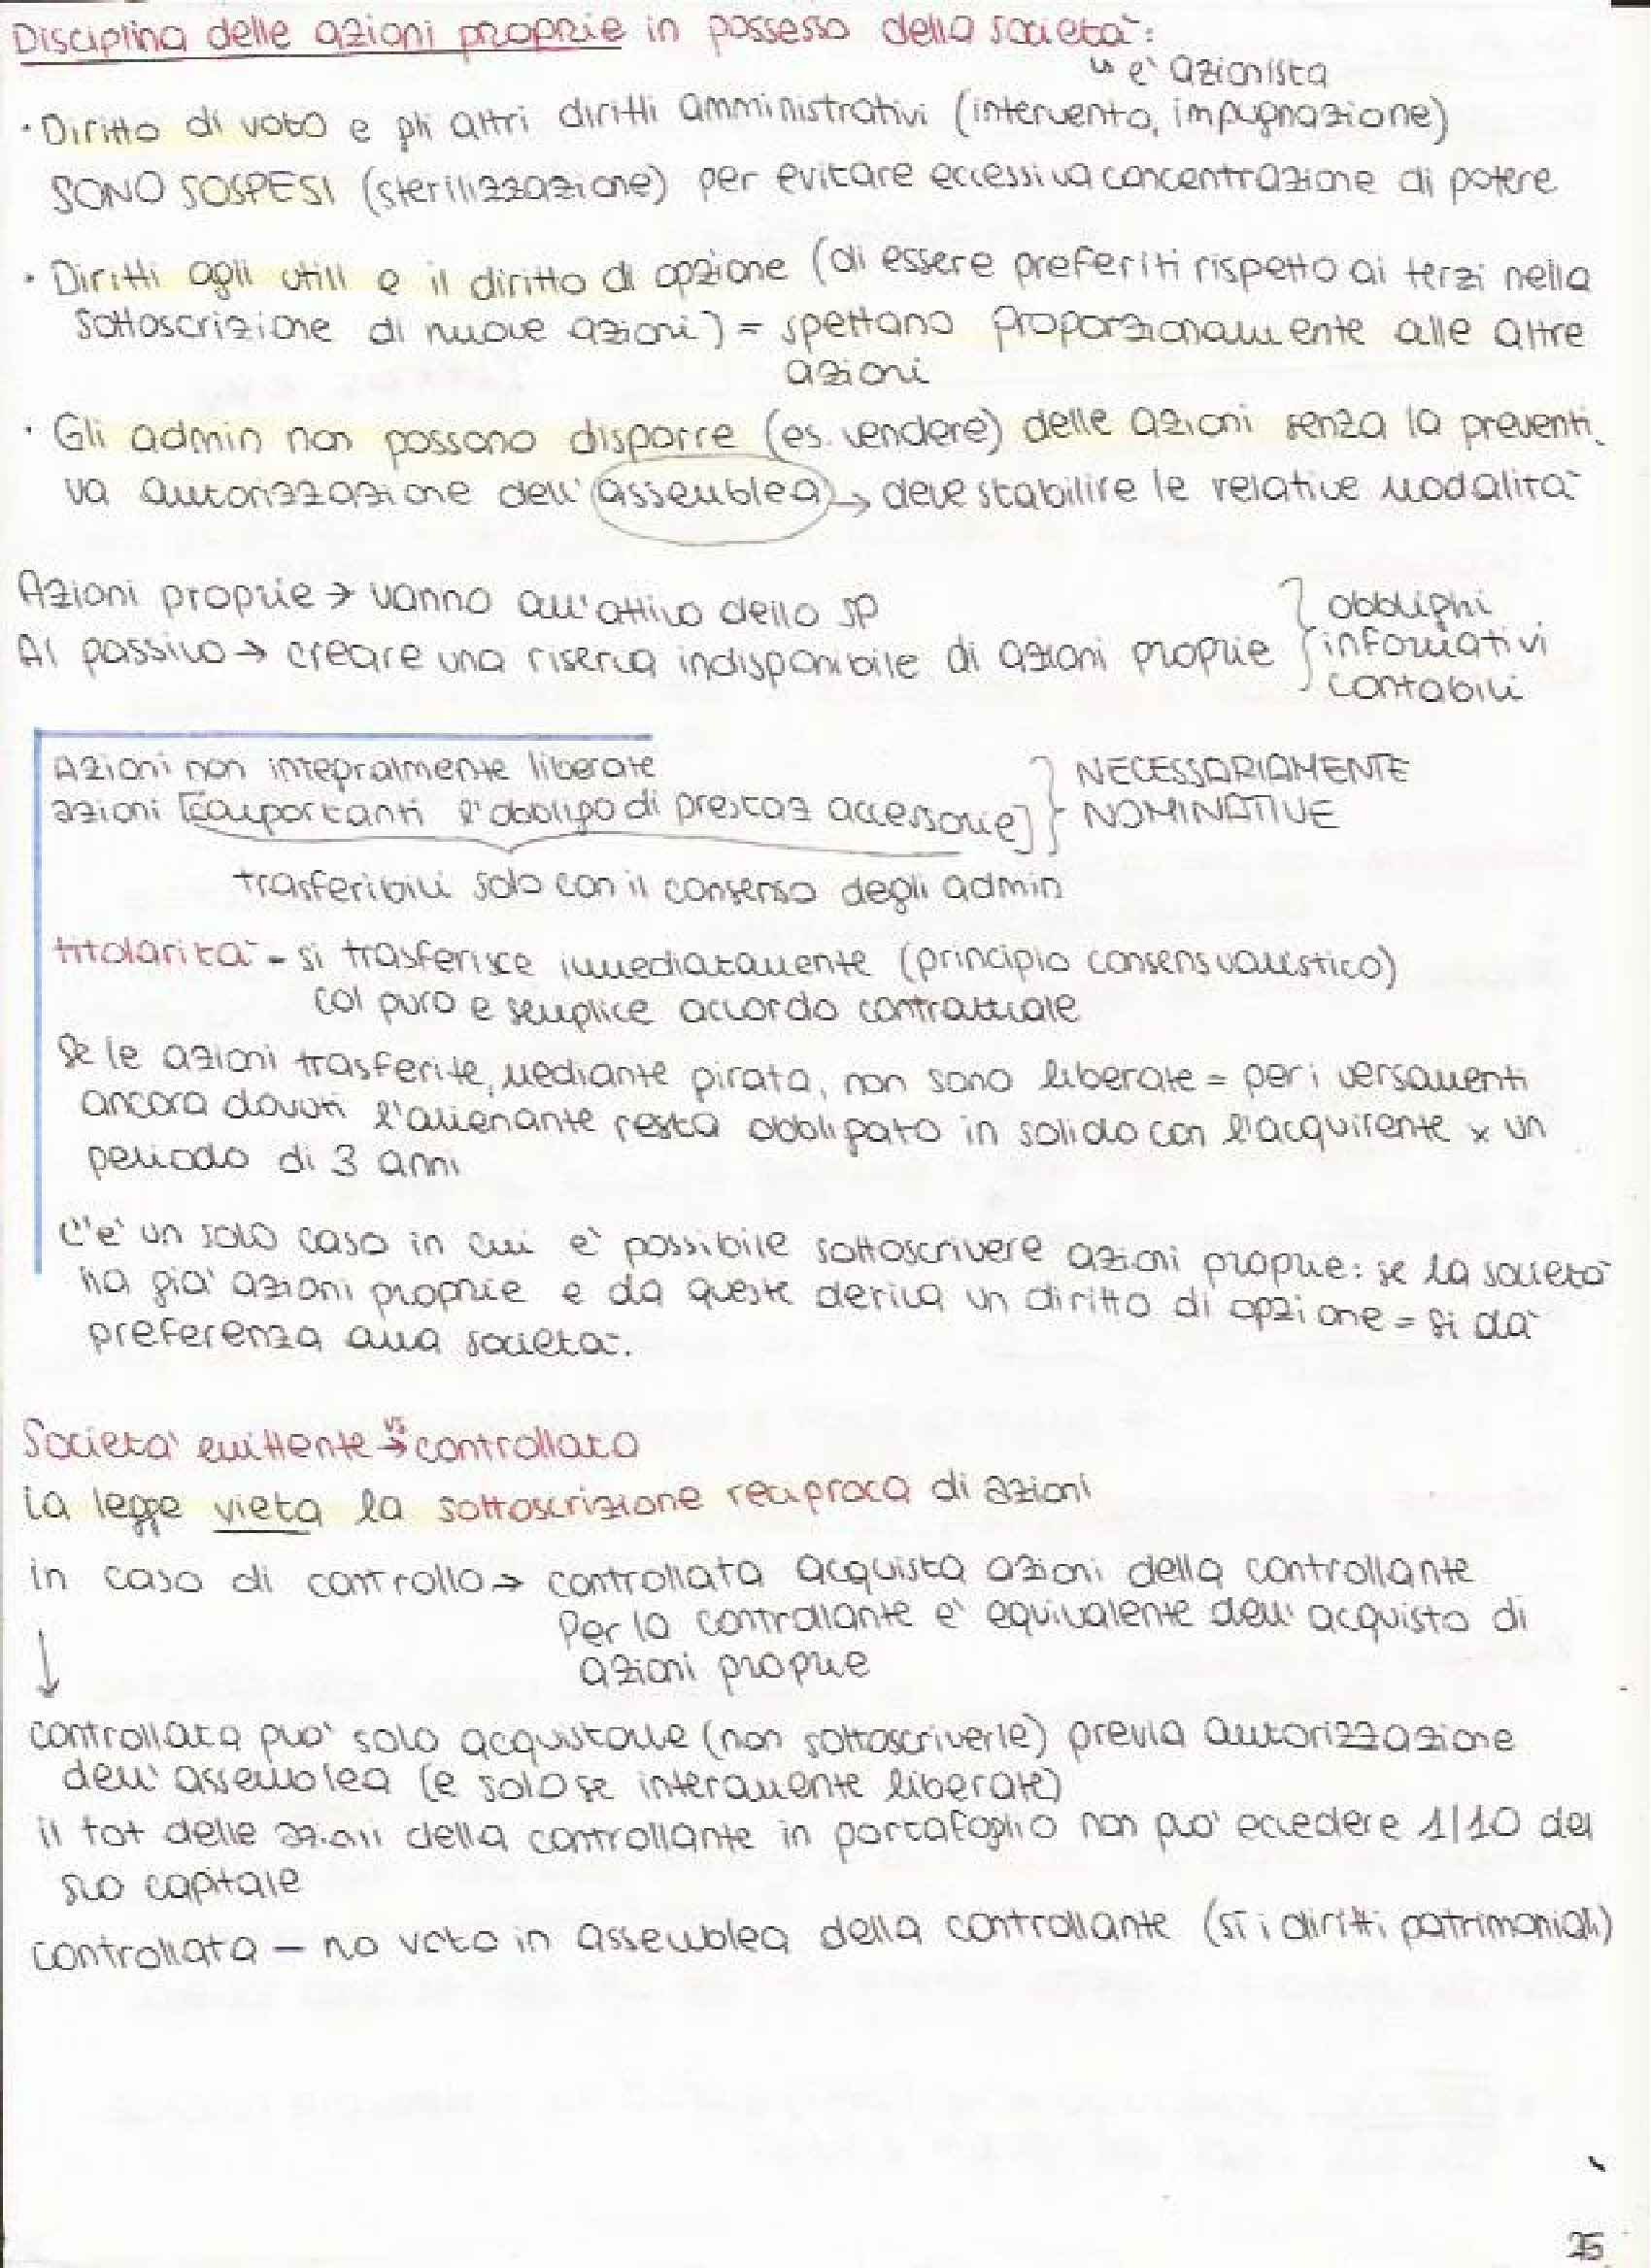 Disciplina delle azioni proprie in possesso della società:
↳ è azionista
· Diritto di voto e gli altri diritti amministrativi (intervento, impugnazione)
SONO SOSPESI (sterilizzazione) per evitare eccessiva concentrazione di potere
· Diritti agli utili e il diritto di opzione (di essere preferiti rispetto ai terzi nella
sottoscrizione di nuove azioni) = spettano proporzionalmente alle altre
azioni
· Gli admin non possono disporre (es. vendere) delle azioni senza la preventi-
va autorizzazione dell'assemblea → deve stabilire le relative modalità
Azioni proprie → vanno all'attivo dello SP
Al passivo → creare una riserva indisponibile di azioni proprie
obblighi
informativi
contabili
Azioni non integralmente liberate
azioni [comportanti l'obbligo di prestaz accessorie]
NECESSARIAMENTE
NOMINATIVE
trasferibili solo con il consenso degli admin
titolarità - si trasferisce immediatamente (principio consensualistico)
col puro e semplice accordo contrattuale
Se le azioni trasferite, mediante girata, non sono liberate = per i versamenti
ancora dovuti l'alienante resta obbligato in solido con l'acquirente x un
periodo di 3 anni
C'è un solo caso in cui è possibile sottoscrivere azioni proprie: se la società
ha già azioni proprie e da queste deriva un diritto di opzione = si dà
preferenza alla società.
Società emittente vs → controllata
La legge vieta la sottoscrizione reciproca di azioni
in caso di controllo → controllata acquista azioni della controllante
Per la controllante è equivalente dell'acquisto di
azioni proprie
↓
controllata può solo acquistarle (non sottoscriverle) previa autorizzazione
dell'assemblea (e solo se interamente liberate)
il tot delle azioni della controllante in portafoglio non può eccedere 1/10 del
suo capitale
controllata – no voto in assemblea della controllante (sì i diritti patrimoniali)